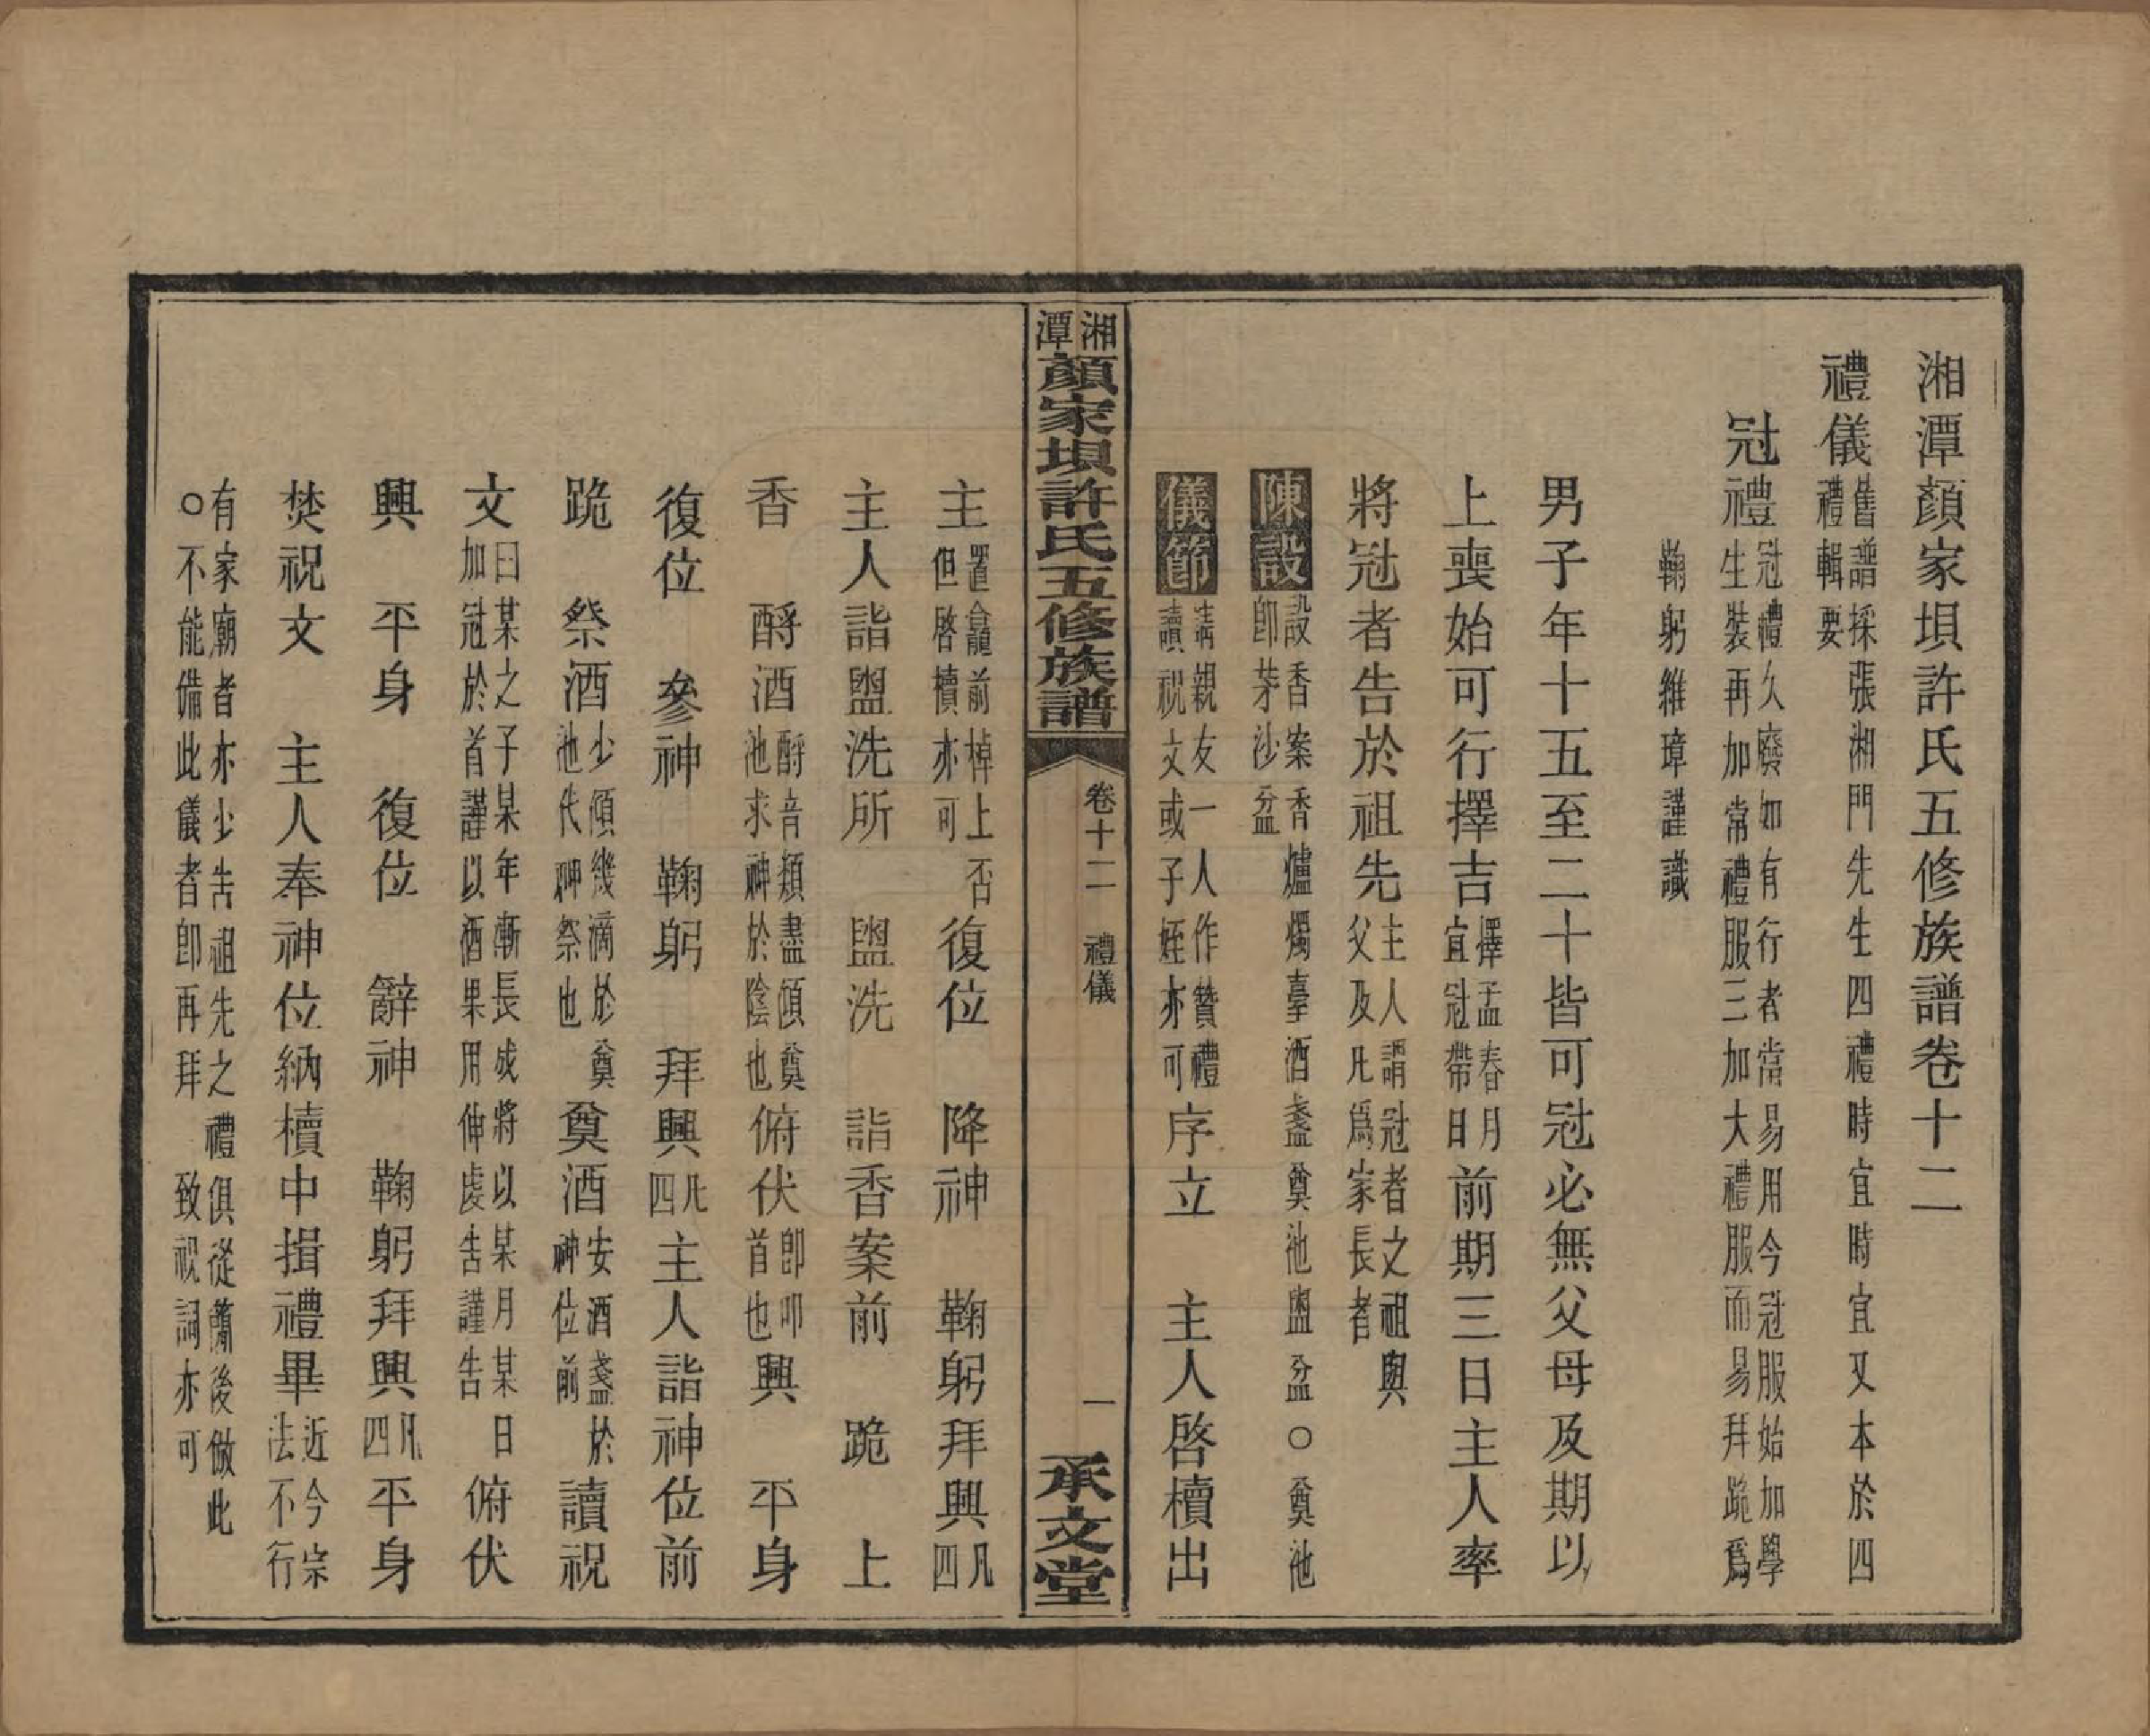 湘潭顏家垻許氏五修族譜卷十二
禮儀舊譜採張湘門先生四禮時宜時宜又本於四禮輯要
冠禮冠禮久廢如有行者當易用今冠服始加學生裝再加常禮服三加大禮服而易拜跪爲
鞠躬維璋謹識
男子年十五至二十皆可冠必無父母及期以
上喪始可行擇吉擇孟春月宜冠帶日前期三日主人率
將冠者告於祖先主人謂冠者之祖與父及凡爲家長者
陳設設香案香爐燭臺酒盞奠池盥盆○奠池卽茅沙盆
儀節請親友一人作贊禮讀祝文或子姪亦可序立　主人啓櫝出
湘潭顏家垻許氏五修族譜　卷十二　禮儀　一　承文堂
主置龕前棹上否但啓櫝亦可復位　降神　鞠躬拜興凡四
主人詣盥洗所　盥洗　詣香案前　跪　上
香　酹酒酹音類盡傾奠池求神於陰也俯伏卽叩首也興　平身
復位　參神　鞠躬　拜興凡四主人詣神位前
跪　祭酒少傾幾滴於奠池代神祭也奠酒安酒盞於神位前讀祝
文曰某之子某年漸長成將以某月某日加冠於首謹以酒果用伸虔告謹告俯伏
興　平身　復位　辭神　鞠躬拜興凡四平身
焚祝文　主人奉神位納櫝中揖禮畢近今宗法不行
有家廟者亦少告祖先之禮俱從簡後倣此○不能備此儀者卽再拜致祝詞亦可